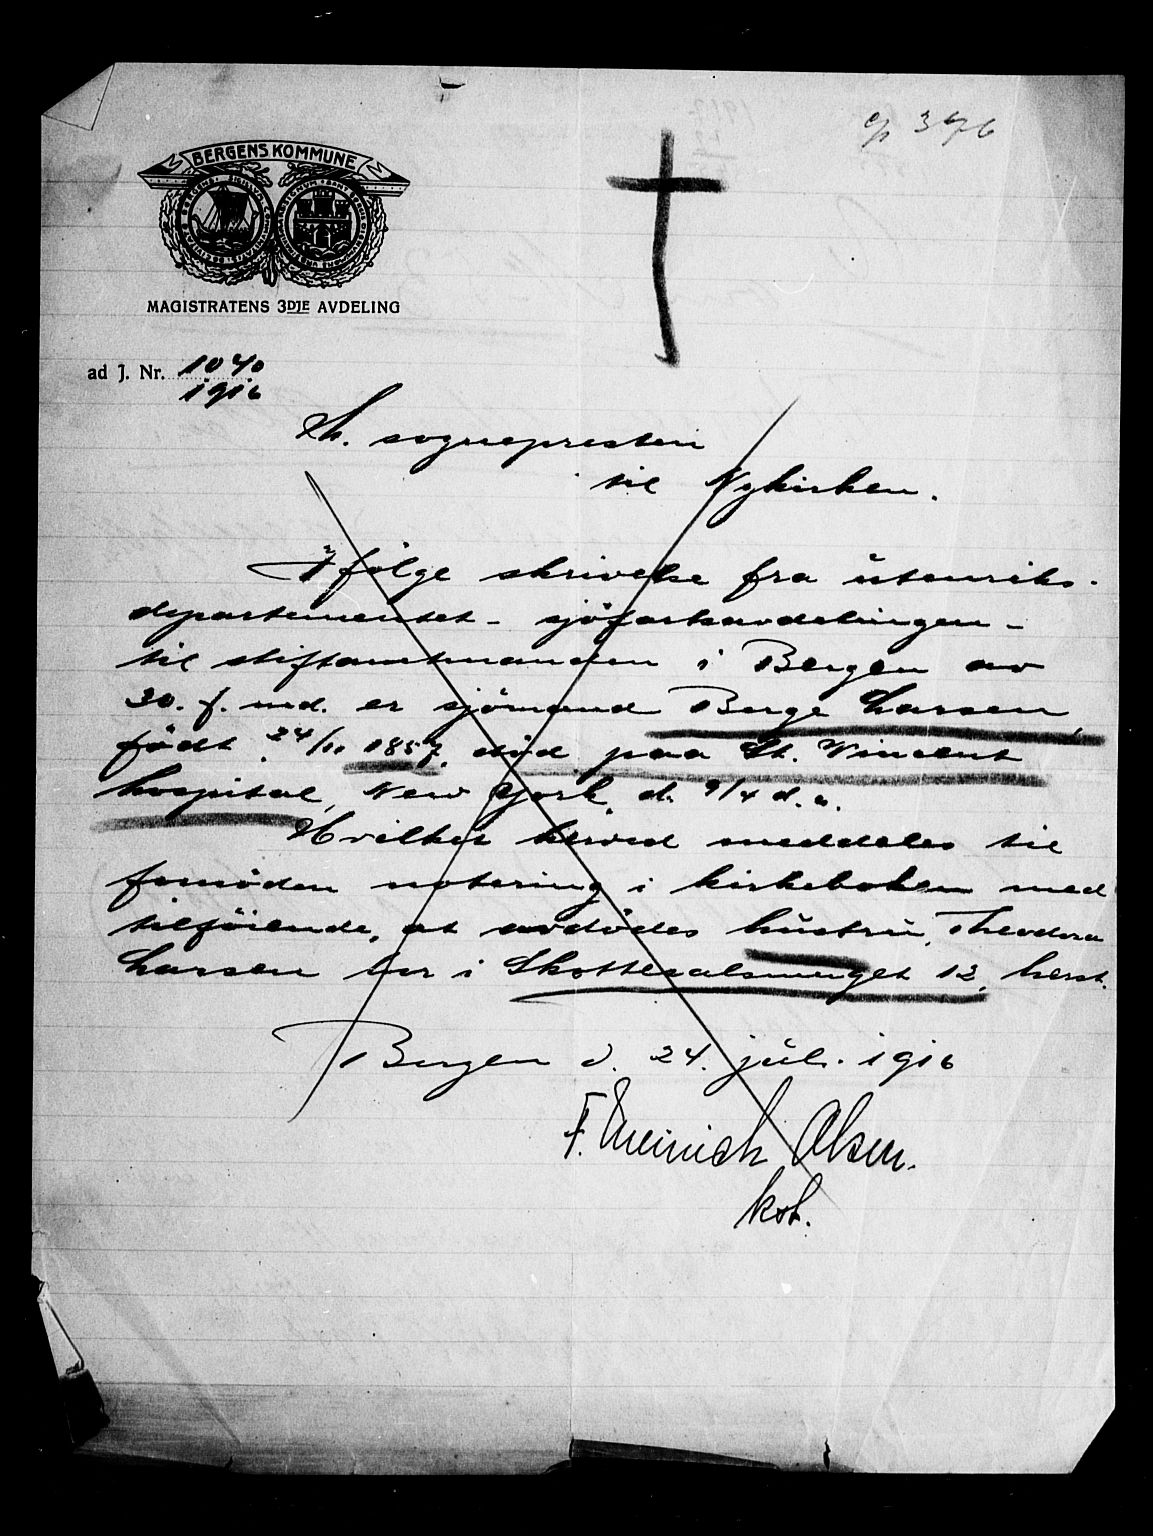 376
BERGENS KOMMUNE
MAGISTRATENS 3DJE AVDELING
ad J. Nr. 1040
1916
Hr. sognepresten
til Nykirken.
Ifølge skrivelse fra utenriks-
departementet - sjöfartsavdelingen -
til stiftamtmanden i Bergen av
30. f. md. er sjömand Berge Larsen,
födt 24/11 1857, död paa St. Vincent
hospital, New York, d. 9/4 d. a.
Hvilket herved meddeles til
fornöden notering i kirkeboken med
tilföiende, at avdödes hustru, Theodora
Larsen bor i Skottesalsmuget 12, herst.
Bergen d. 24. juli 1916
F. Meinich Olsen.
kst.